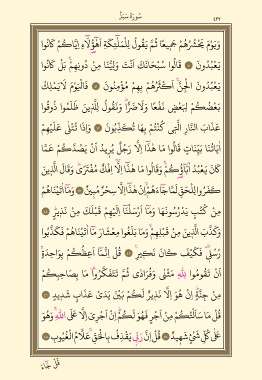 سُورَةُ سَبَأٍ
٤٣٢
وَيَوْمَ يَحْشُرُهُمْ جَمِيعًا ثُمَّ يَقُولُ لِلْمَلٰٓئِكَةِ اَهٰٓؤُ۬لَٓاءِ اِيَّاكُمْ كَانُوا
يَعْبُدُونَ ۞ قَالُوا سُبْحَانَكَ اَنْتَ وَلِيُّنَا مِنْ دُونِهِمْۚ بَلْ كَانُوا
يَعْبُدُونَ الْجِنَّۚ اَكْثَرُهُمْ بِهِمْ مُؤْمِنُونَ ۞ فَالْيَوْمَ لَا يَمْلِكُ
بَعْضُكُمْ لِبَعْضٍ نَفْعًا وَلَا ضَرًّاۜ وَنَقُولُ لِلَّذِينَ ظَلَمُوا ذُوقُوا
عَذَابَ النَّارِ الَّتِي كُنْتُمْ بِهَا تُكَذِّبُونَ ۞ وَاِذَا تُتْلٰى عَلَيْهِمْ
اٰيَاتُنَا بَيِّنَاتٍ قَالُوا مَا هٰذَٓا اِلَّا رَجُلٌ يُرِيدُ اَنْ يَصُدَّكُمْ عَمَّا
كَانَ يَعْبُدُ اٰبَٓاؤُ۬كُمْۚ وَقَالُوا مَا هٰذَٓا اِلَّٓا اِفْكٌ مُفْتَرًىۜ وَقَالَ الَّذِينَ
كَفَرُوا لِلْحَقِّ لَمَّا جَٓاءَهُمْۙ اِنْ هٰذَٓا اِلَّا سِحْرٌ مُبِينٌ ۞ وَمَٓا اٰتَيْنَاهُمْ
مِنْ كُتُبٍ يَدْرُسُونَهَا وَمَٓا اَرْسَلْنَٓا اِلَيْهِمْ قَبْلَكَ مِنْ نَذِيرٍۜ ۞
وَكَذَّبَ الَّذِينَ مِنْ قَبْلِهِمْۙ وَمَا بَلَغُوا مِعْشَارَ مَٓا اٰتَيْنَاهُمْ فَكَذَّبُوا
رُسُلِي۠ فَكَيْفَ كَانَ نَكِيرِ ۞ قُلْ اِنَّمَٓا اَعِظُكُمْ بِوَاحِدَةٍۚ
اَنْ تَقُومُوا لِلّٰهِ مَثْنٰى وَفُرَادٰى ثُمَّ تَتَفَكَّرُوا۠ مَا بِصَاحِبِكُمْ
مِنْ جِنَّةٍۜ اِنْ هُوَ اِلَّا نَذِيرٌ لَكُمْ بَيْنَ يَدَيْ عَذَابٍ شَدِيدٍ ۞
قُلْ مَا سَاَلْتُكُمْ مِنْ اَجْرٍ فَهُوَ لَكُمْۜ اِنْ اَجْرِيَ اِلَّا عَلَى اللّٰهِۚ وَهُوَ
عَلٰى كُلِّ شَيْءٍ شَهِيدٌ ۞ قُلْ اِنَّ رَبِّي يَقْذِفُ بِالْحَقِّۚ عَلَّامُ الْغُيُوبِ ۞
قُلْ جَٓاءَ